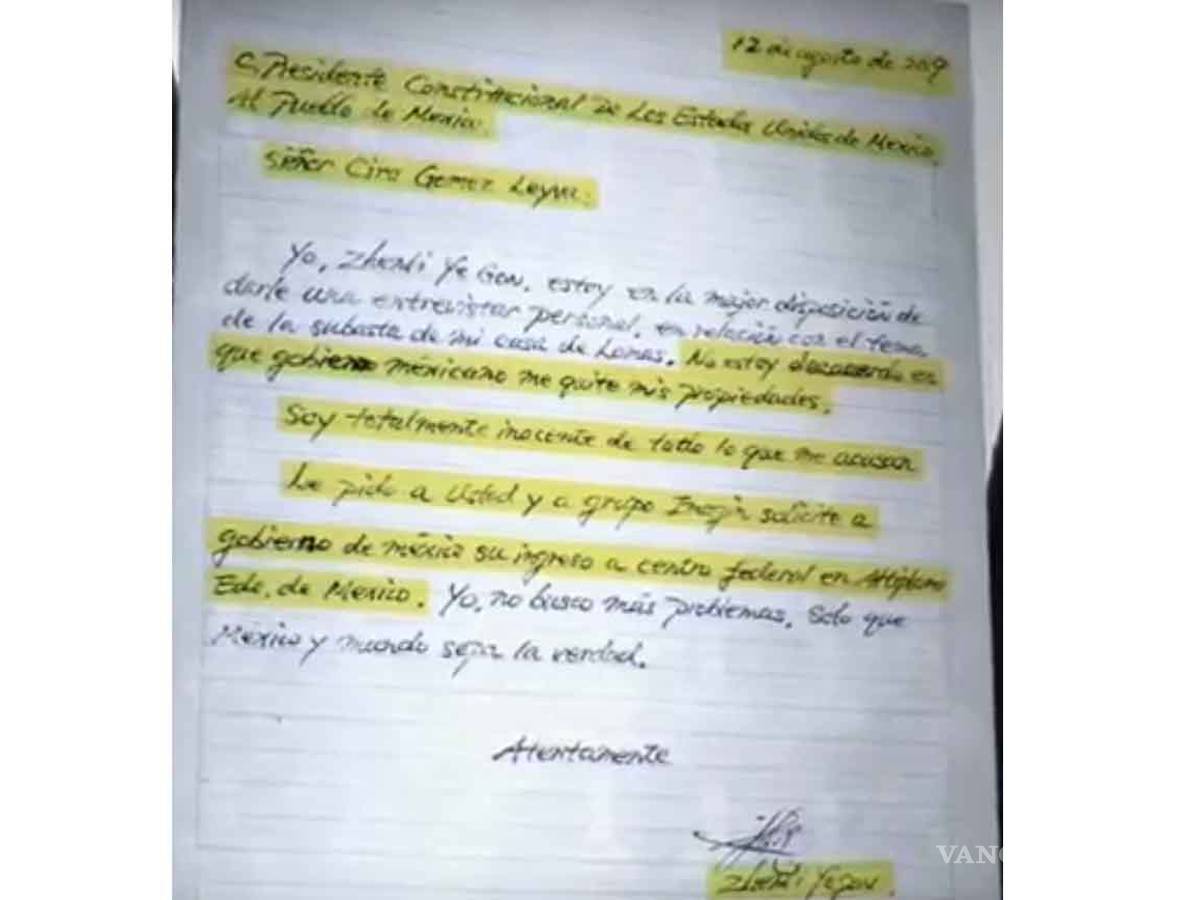 12 de agosto de 2019
C. Presidente Constitucional De Los Estados Unidos de Mexico.
Al Pueblo de Mexico.
Señor Ciro Gomez Leyva.
Yo, Zhenli Ye Gon, estoy en la mejor disposición de
darle una entrevistar personal, en relación con el tema
de la subasta de mi casa de Lomas. No estoy deacuerdo en
que gobierno méxicano me quite mis propiedades.
Soy totalmente inocente de todo lo que me acusan
Le pido a Usted y a grupo Imagin solicite a
gobierno de méxico su ingreso a centro federal en Altiplano
Edo. de Mexico. Yo, no busco más problemas. Solo que
México y mundo sepa la verdad.
Atentamente
Zhenli Yegon.
VANG